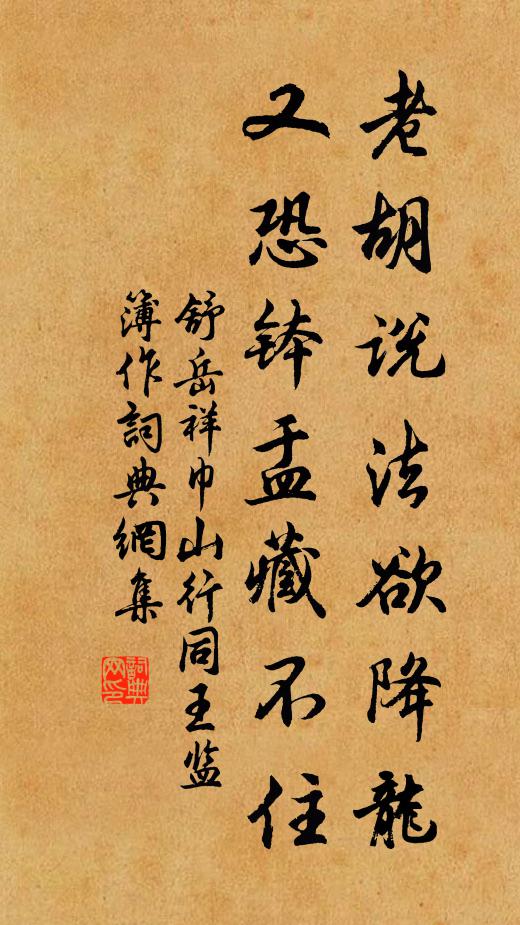 老胡说法欲降龍
又恐钵盂藏不住
舒岳祥巾山行同王监
簿作詞典網集
詞典
网印